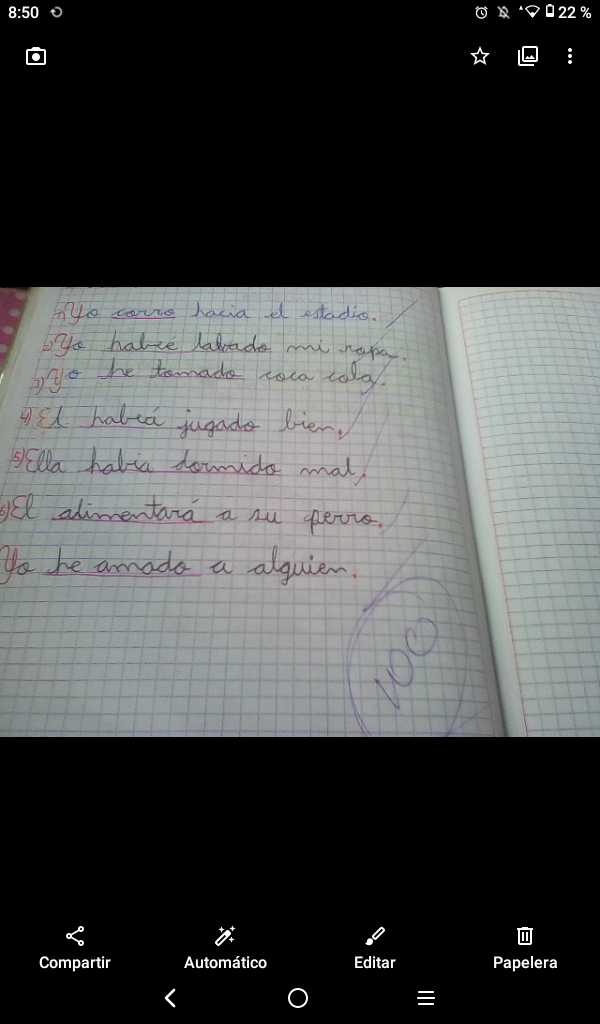 8:50
22 %
1) Yo corro hacia el estadio.
2) Yo habré labado mi ropa.
3) Yo he tomado coca cola.
4) El habrá jugado bien.
5) Ella habia dormido mal.
6) El alimentará a su perro.
Yo he amado a alguien.
Compartir
Automático
Editar
Papelera